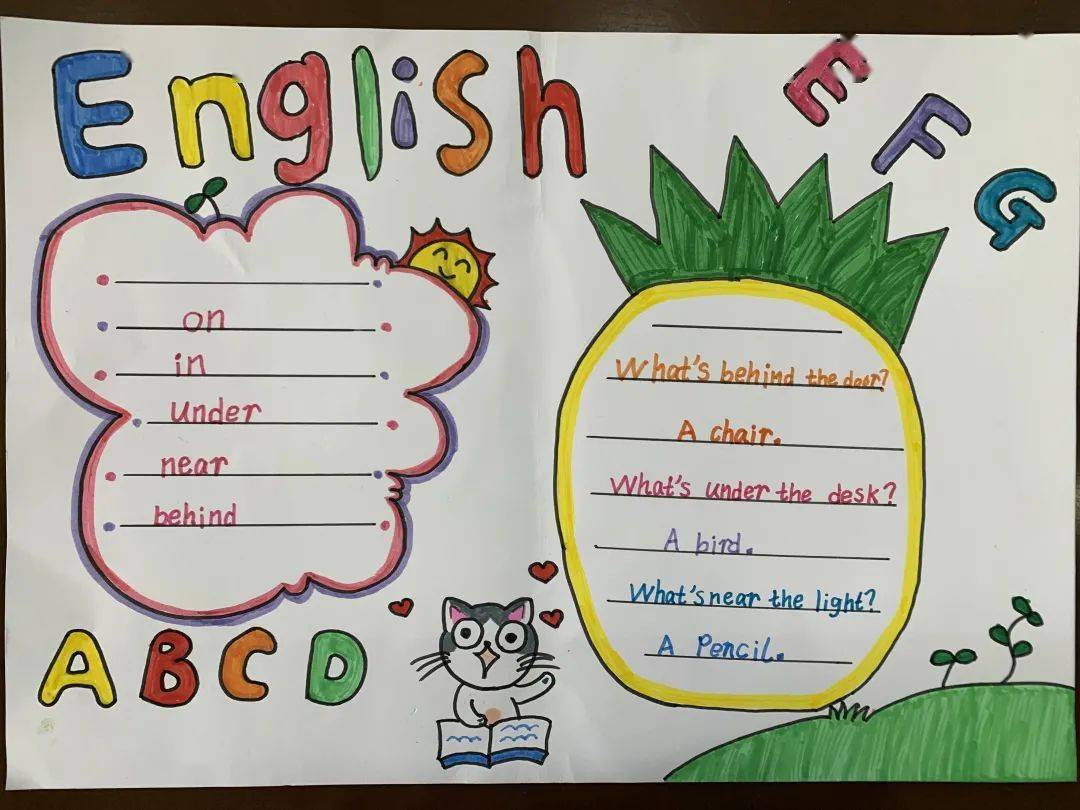 English
E F G
on
in
under
near
behind
What's behind the door?
A chair.
What's under the desk?
A bird.
What's near the light?
A Pencil.
A B C D